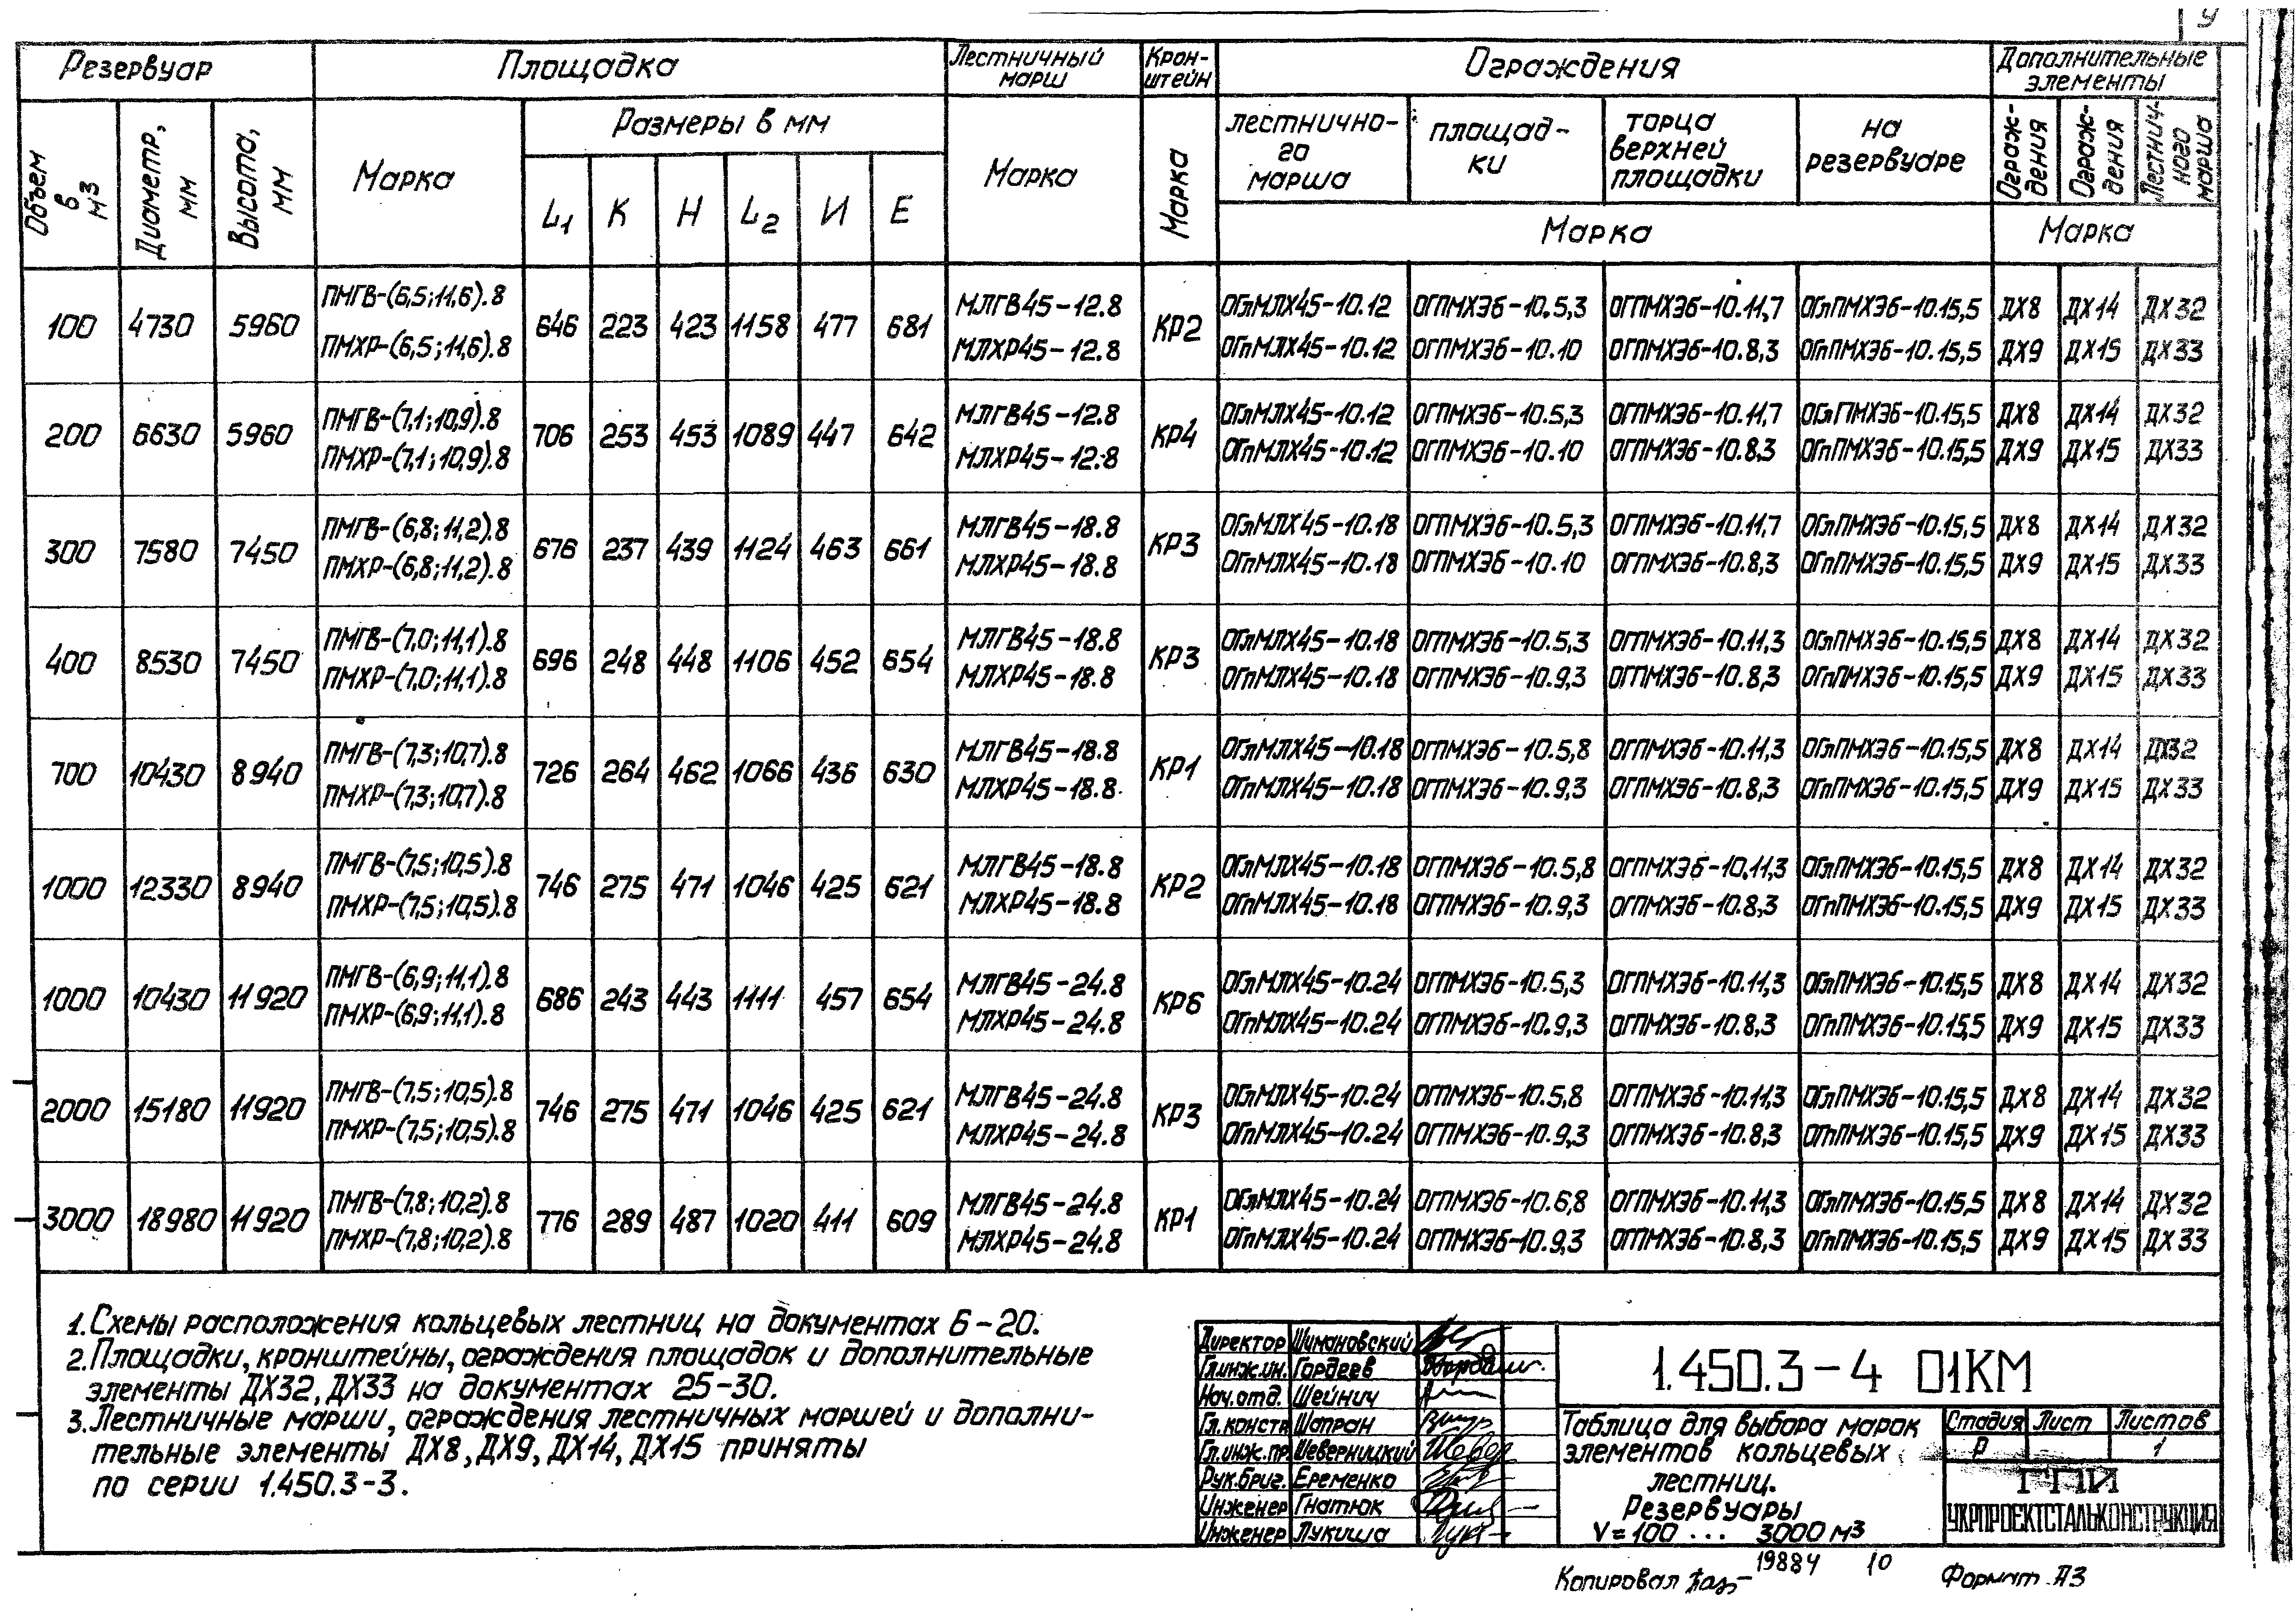 Резервуар Площадка Лестничный марш Крон-штейн Ограждения Дополнительные элементы
Объем в м3 Диаметр, мм Высота, мм Марка Размеры в мм Марка Марка лестнично-го марша площад-ки торца верхней площадки на резервуаре Ограж-дения Ограж-дения Лестнич-ного марша
L1 К Н L2 И Е Марка Марка
ПМГВ-(6,5;11,6).8 МЛГВ45-12.8 ОГлМЛХ45-10.12 ОГПМХЭб-10.5,3 ОГПМХЭб-10.11,7 ОГлПМХЭб-10.15,5 ДХ8 ДХ14 ДХ32
100 4730 5960 646 223 423 1158 477 681 КР2
ПМХР-(6,5;11,6).8 МЛХР45-12.8 ОГпМЛХ45-10.12 ОГПМХЭб-10.10 ОГПМХЭб-10.8,3 ОГпПМХЭб-10.15,5 ДХ9 ДХ15 ДХ33
ПМГВ-(7,1;10,9).8 МЛГВ45-12.8 ОГлМЛХ45-10.12 ОГПМХЭб-10.5,3 ОГПМХЭб-10.11,7 ОГлПМХЭб-10.15,5 ДХ8 ДХ14 ДХ32
200 6630 5960 706 253 453 1089 447 642 КР4
ПМХР-(7,1;10,9).8 МЛХР45-12.8 ОГпМЛХ45-10.12 ОГПМХЭб-10.10 ОГПМХЭб-10.8,3 ОГпПМХЭб-10.15,5 ДХ9 ДХ15 ДХ33
ПМГВ-(6,8;11,2).8 МЛГВ45-18.8 ОГлМЛХ45-10.18 ОГПМХЭб-10.5,3 ОГПМХЭб-10.11,7 ОГлПМХЭб-10.15,5 ДХ8 ДХ14 ДХ32
300 7580 7450 676 237 439 1124 463 661 КР3
ПМХР-(6,8;11,2).8 МЛХР45-18.8 ОГпМЛХ45-10.18 ОГПМХЭб-10.10 ОГПМХЭб-10.8,3 ОГпПМХЭб-10.15,5 ДХ9 ДХ15 ДХ33
ПМГВ-(7,0;11,1).8 МЛГВ45-18.8 ОГлМЛХ45-10.18 ОГПМХЭб-10.5,3 ОГПМХЭб-10.11,3 ОГлПМХЭб-10.15,5 ДХ8 ДХ14 ДХ32
400 8530 7450 696 248 448 1106 452 654 КР3
ПМХР-(7,0;11,1).8 МЛХР45-18.8 ОГпМЛХ45-10.18 ОГПМХЭб-10.9,3 ОГПМХЭб-10.8,3 ОГпПМХЭб-10.15,5 ДХ9 ДХ15 ДХ33
ПМГВ-(7,3;10,7).8 МЛГВ45-18.8 ОГлМЛХ45-10.18 ОГПМХЭб-10.5,8 ОГПМХЭб-10.11,3 ОГлПМХЭб-10.15,5 ДХ8 ДХ14 ДХ32
700 10430 8940 726 264 462 1066 436 630 КР1
ПМХР-(7,3;10,7).8 МЛХР45-18.8 ОГпМЛХ45-10.18 ОГПМХЭб-10.9,3 ОГПМХЭб-10.8,3 ОГпПМХЭб-10.15,5 ДХ9 ДХ15 ДХ33
ПМГВ-(7,5;10,5).8 МЛГВ45-18.8 ОГлМЛХ45-10.18 ОГПМХЭб-10.5,8 ОГПМХЭб-10.11,3 ОГлПМХЭб-10.15,5 ДХ8 ДХ14 ДХ32
1000 12330 8940 746 275 471 1046 425 621 КР2
ПМХР-(7,5;10,5).8 МЛХР45-18.8 ОГпМЛХ45-10.18 ОГПМХЭб-10.9,3 ОГПМХЭб-10.8,3 ОГпПМХЭб-10.15,5 ДХ9 ДХ15 ДХ33
ПМГВ-(6,9;11,1).8 МЛГВ45-24.8 ОГлМЛХ45-10.24 ОГПМХЭб-10.5,3 ОГПМХЭб-10.11,3 ОГлПМХЭб-10.15,5 ДХ8 ДХ14 ДХ32
1000 10430 11920 686 243 443 1111 457 654 КР6
ПМХР-(6,9;11,1).8 МЛХР45-24.8 ОГпМЛХ45-10.24 ОГПМХЭб-10.9,3 ОГПМХЭб-10.8,3 ОГпПМХЭб-10.15,5 ДХ9 ДХ15 ДХ33
ПМГВ-(7,5;10,5).8 МЛГВ45-24.8 ОГлМЛХ45-10.24 ОГПМХЭб-10.5,8 ОГПМХЭб-10.11,3 ОГлПМХЭб-10.15,5 ДХ8 ДХ14 ДХ32
2000 15180 11920 746 275 471 1046 425 621 КР3
ПМХР-(7,5;10,5).8 МЛХР45-24.8 ОГпМЛХ45-10.24 ОГПМХЭб-10.9,3 ОГПМХЭб-10.8,3 ОГпПМХЭб-10.15,5 ДХ9 ДХ15 ДХ33
ПМГВ-(7,8;10,2).8 МЛГВ45-24.8 ОГлМЛХ45-10.24 ОГПМХЭб-10.6,8 ОГПМХЭб-10.11,3 ОГлПМХЭб-10.15,5 ДХ8 ДХ14 ДХ32
3000 18980 11920 776 289 487 1020 411 609 КР1
ПМХР-(7,8;10,2).8 МЛХР45-24.8 ОГпМЛХ45-10.24 ОГПМХЭб-10.9,3 ОГПМХЭб-10.8,3 ОГпПМХЭб-10.15,5 ДХ9 ДХ15 ДХ33
1. Схемы расположения кольцевых лестниц на документах 6-20.
2. Площадки, кронштейны, ограждения площадок и дополнительные
элементы ДХ32, ДХ33 на документах 25-30.
3. Лестничные марши, ограждения лестничных маршей и дополни-
тельные элементы ДХ8, ДХ9, ДХ14, ДХ15 приняты
по серии 1.450.3-3.
Директор Шимановский
Гл.инж.ин. Гордеев
Нач.отд. Шейнич
Гл.констр Шапран
Гл.инж.пр. Шеверницкий
Рук.бриг. Еременко
Инженер Гнатюк
Инженер Лукиша
1.450.3-4 01КМ
Таблица для выбора марок
элементов кольцевых
лестниц.
Резервуары
V=100 ... 3000 м3
Стадия Лист Листов
Р 1
ГПИ
УКРПРОЕКТСТАЛЬКОНСТРУКЦИЯ
Копировал 19884 10 Формат А3